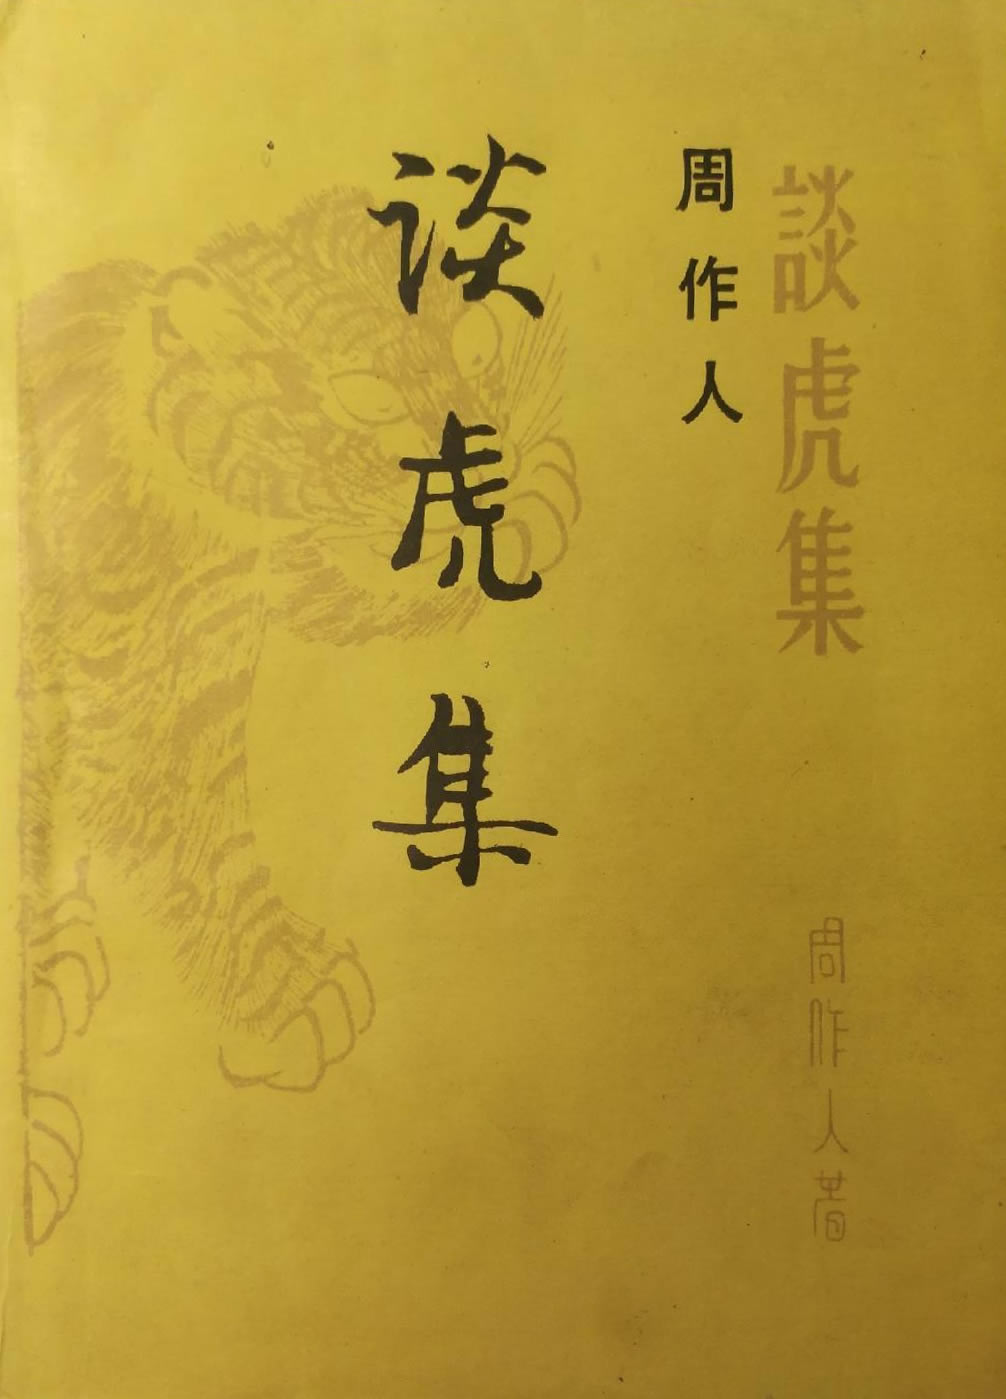 談虎集
周作人著
周作人
谈虎集